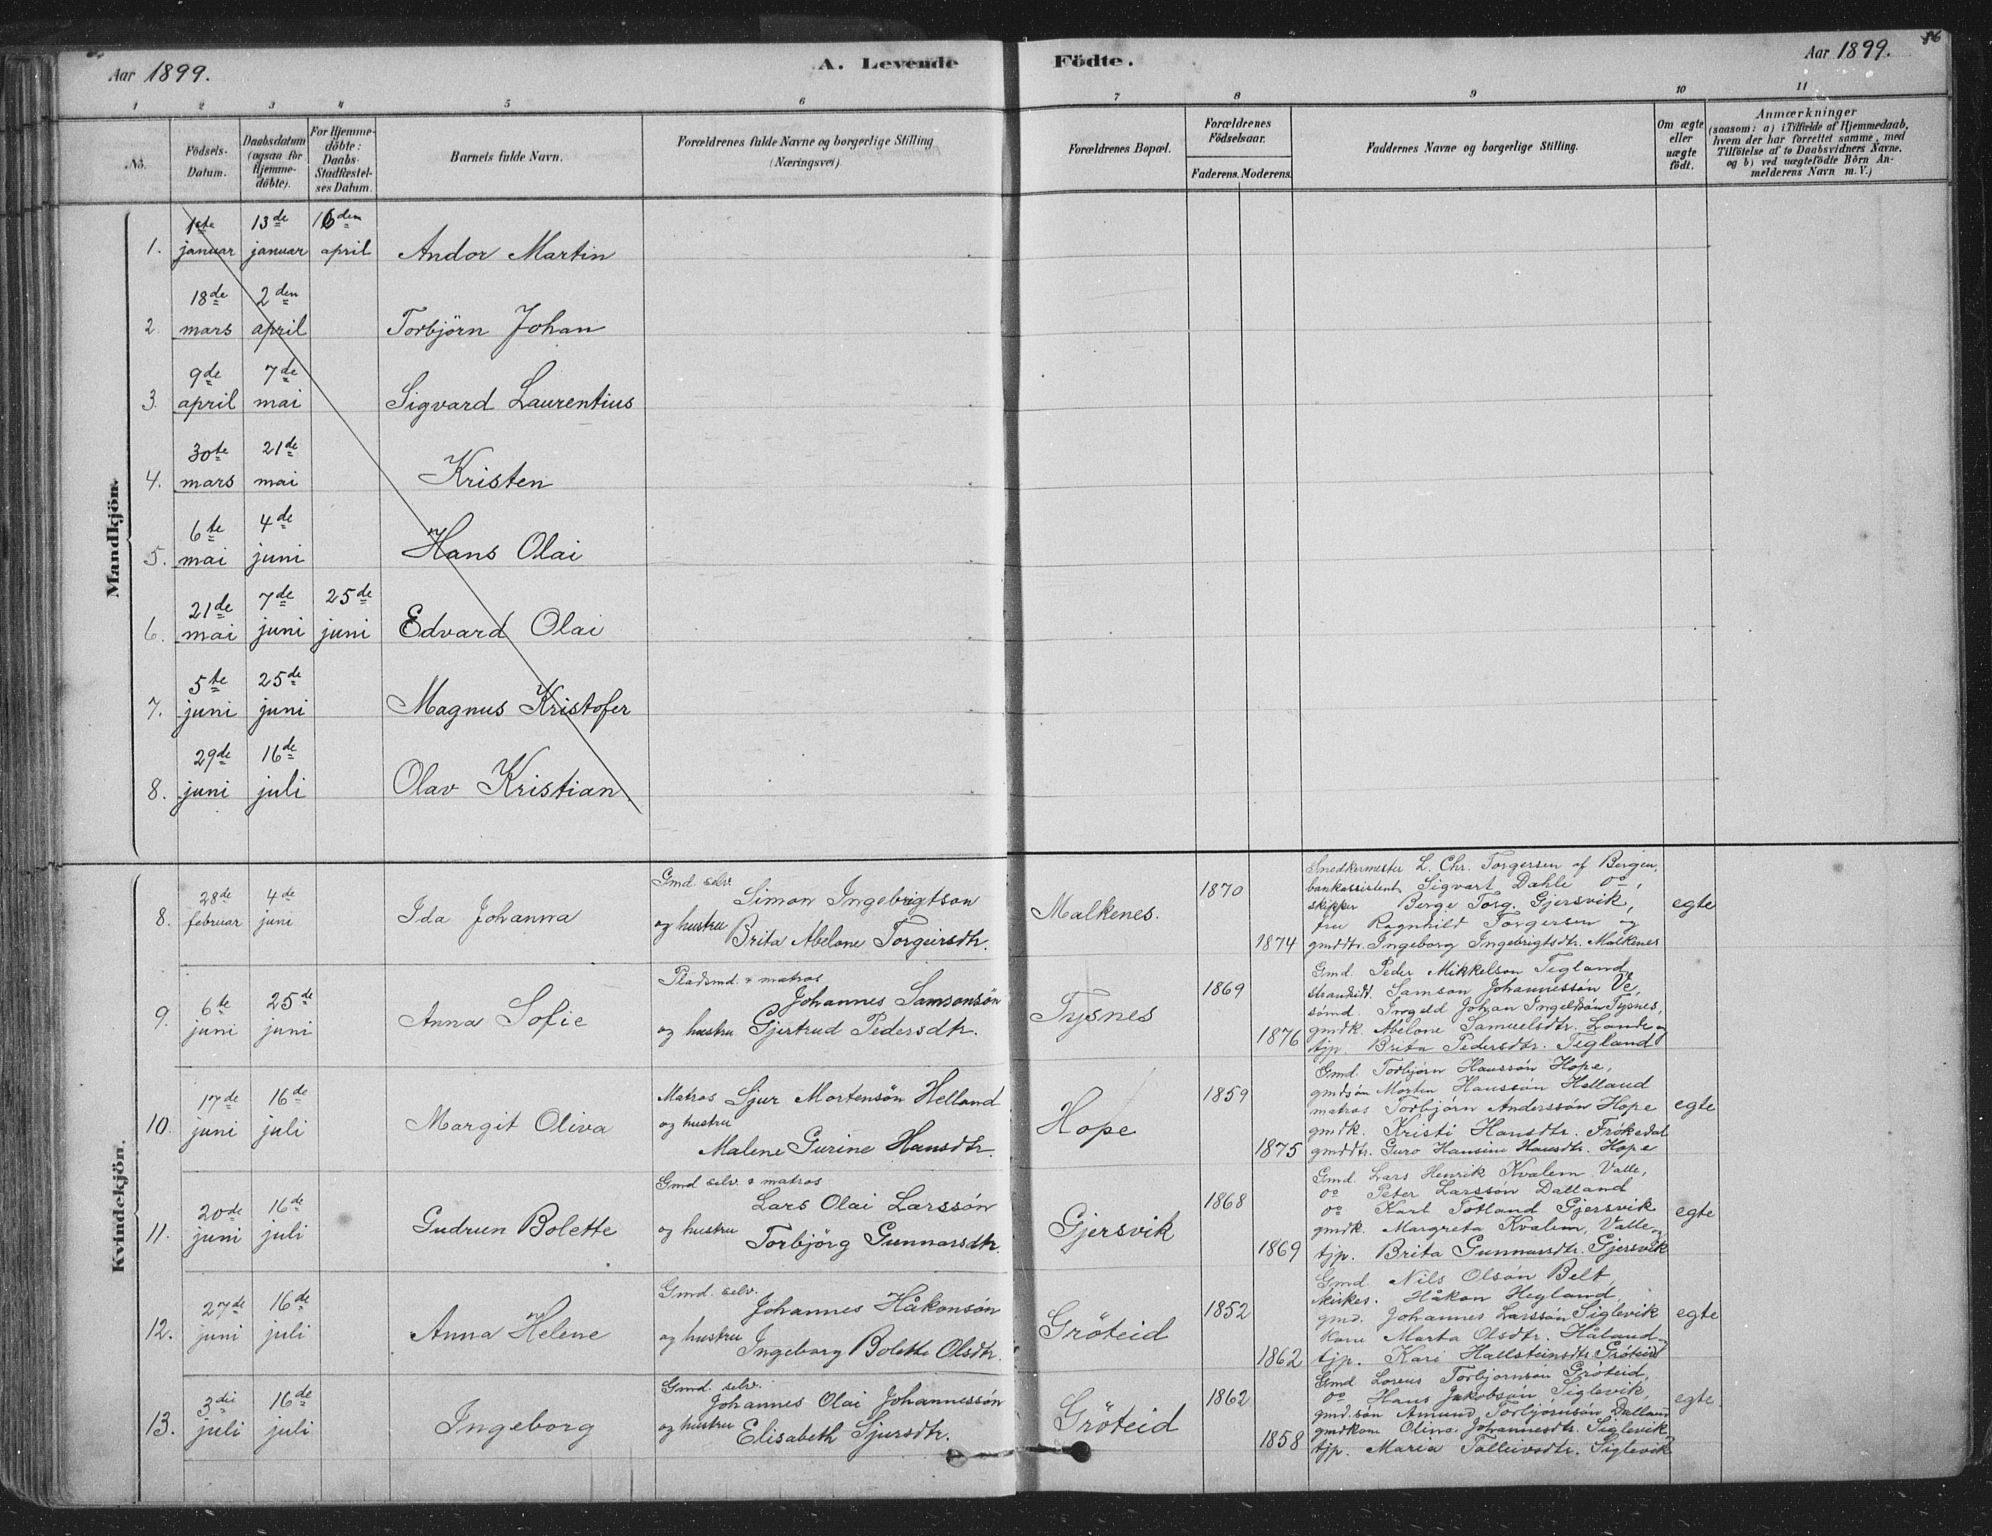 Aar 1899.
A. Levende Födte.
Aar 1899.
86
1 2 3 4 5 6 7 8 9 10 11
No.
Födsels-Datum.
Daabsdatum (ogsaa for Hjemme-döbte).
For Hjemme-döbte: Daabs-Stadfæstel-ses Datum.
Barnets fulde Navn.
Forældrenes fulde Navne og borgerlige Stilling (Næringsvei).
Forældrenes Bopæl.
Forældrenes Födselsaar.
Faderens. Moderens.
Faddernes Navne og borgerlige Stilling.
Om ægte eller uægte födt.
Anmærkninger
(saasom: a) i Tilfælde af Hjemmedaab,
hvem der har forrettet samme, med
Tilföielse af to Daabsvidners Navne,
og b) ved uægtefödte Börn An-
melderens Navn m. V.)
Mandkjön.
1. 1ste januar 13de januar 16den april Andor Martin
2. 18de mars 2den april Torbjörn Johan
3. 9de april 7de mai Sigvard Laurentius
4. 30te mars 21de mai Kristen
5. 6te mai 4de juni Hans Olai
6. 21de mai 7de juni 25de juni Edvard Olai
7. 5te juni 25de juni Magnus Kristofer
8. 29de juni 16de juli Olav Kristian
Kvindekjön.
8. 28de februar 4de juni Ida Johanna
Gmd. selv. Simon Ingebrigtson
og hustru Brita Abelone Torgeirsdtr.
Malkenes. 1870 1874
Snedkermester L. Chr. Torgersen af Bergen,
bankassistent Sigvart Dahle do,
skipper Berge Torg. Gjersvik,
fru Ragnhild Torgersen og
gmddtr. Ingeborg Ingebrigtsdtr. Malkenes
egte
9. 6te juni 25de juni Anna Sofie
Pladsmd. & matros
Johannes Samsonsön
og hustru Gjertrud Pedersdtr.
Tysnes 1869 1876
Gmd. Peder Mikkelson Tegland,
strandsidd. Samson Johannesson Ve,
sömd. Ingeld Johan Ingeldsön Tysnes,
gmdk. Abelone Samuelsdtr. Lande og
tjp. Brita Pedersdtr. Tegland
10. 17de juni 16de juli Margit Oliva
Matros Sjur Mortensön Helland
og hustru
Malene Gurine Hansdtr.
Hope 1859 1875
Gmd. Torbjörn Hanssön Hope,
gmdsön Morten Hanssön Helland
matros Torbjörn Anderssön Hope
gmdk. Kristi Hansdtr. Frökedal
gmddtr. Guro Hansine Hansdtr. Hope
egte
11. 20de juni 16de juli Gudrun Bolette
Gmd selv. & matros
Lars Olai Larssön
og hustru Torbjörg Gunnarsdtr.
Gjersvik 1868 1869
Gmd. Lars Henrik Kvalem Valle,
do Peter Larssön Dalland
do Karl Totland Gjersvik
gmdk. Margreta Kvalem, Valle og
tjp. Brita Gunnarsdtr. Gjersvik
egte
12. 27de juni 16de juli Anna Helene
Gmd. selv.
Johannes Håkonsön
og hustru Ingeborg Bolette Olsdtr.
Gröteid 1852 1862
Gmd. Nils Olsön Belt,
Håkon Hegland,
gmd. Johannes Larssön Siglevik
kone Marta Olsdtr. Håland og
tjp. Kari Hallsteinsdtr. Gröteid
egte
13. 3die juli 16de juli Ingeborg
Gmd. selv.
Johannes Olai Johannessön
og hustru Elisabeth Sjursdtr.
Gröteid 1862 1858
Gmd Lorens Torbjörnsön Gröteid,
do Hans Jakobsön Siglevik,
gmd.sön Amund Torbjörnsön Dalland
gmdkone Olina Johannesdtr. Siglevik
tjp. Maria Tolleivsdtr. Siglevik
egte.